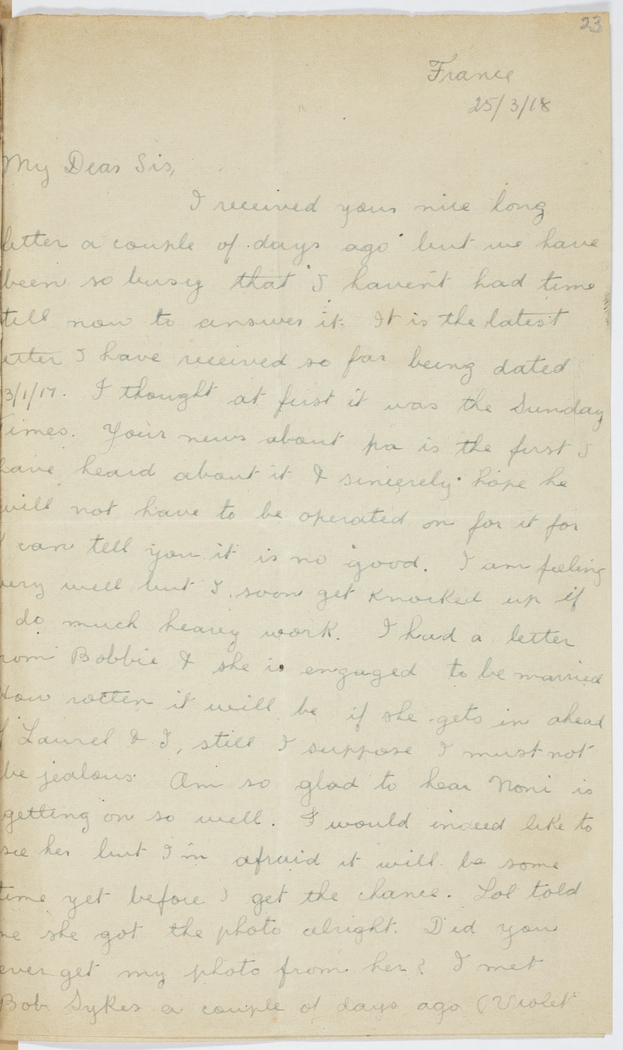 23
France
25/3/18
My Dear Sis,
I received your nice long
letter a couple of days ago but we have
been so busy that I haven't had time
till now to answer it. It is the latest
letter I have received so far being dated
3/1/17. I thought at first it was the Sunday
Times. Your news about pa is the first I
have heard about it & sincerely hope he
will not have to be operated on for it for
I can tell you it is no good. I am feeling
very well but I soon get knocked up if
do much heavy work. I had a letter
from Bobbie & she is engaged to be married
How rotten it will be if she gets in ahead
of Laurel & I, still I suppose I must not
be jealous. Am so glad to hear Noni is
getting on so well. I would indeed like to
see her but I'm afraid it will be some
time yet before I get the chance. Lol told
me she got the photo alright. Did you
ever get my photo from her? I met
Bob Sykes a couple of days ago (Violet